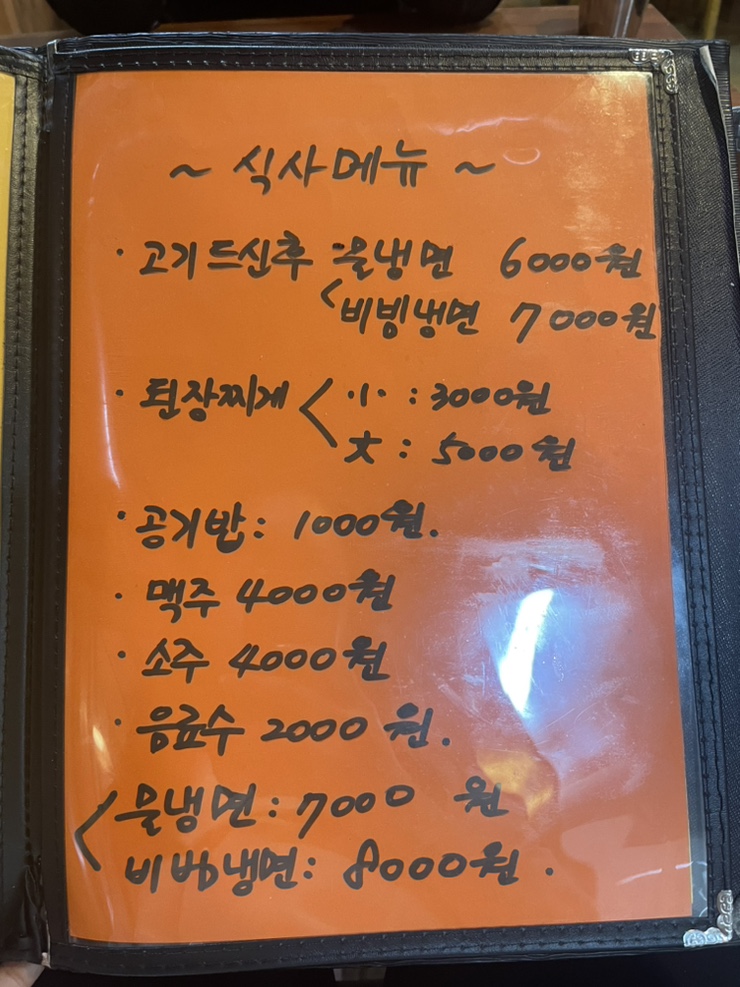 ~ 식사메뉴 ~
· 고기드신후 물냉면 6000원
< 비빙냉면 7000원
· 된장찌게 < 小 : 3000원
大 : 5000원
· 공기밥 : 1000원.
· 맥주 4000원
· 소주 4000원
· 음료수 2000원.
< 물냉면 : 7000 원
비빔냉면 : 8000원.